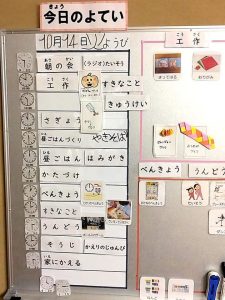 きょう
今日のよてい
10月14日(火)ようび
あさ かい
朝の会
(ラジオ)たいそう
こう さく
工作
すきなこと
きゅうけい
さぎょう
ひる
昼ごはんづくり
やきそば
ひる
昼ごはん
はみがき
かたづけ
べんきょう
すきなこと
うんどう
そうじ
かえりのじゅんび
いえ
家にかえる
こう さく
工作
べんきょう
うんどう